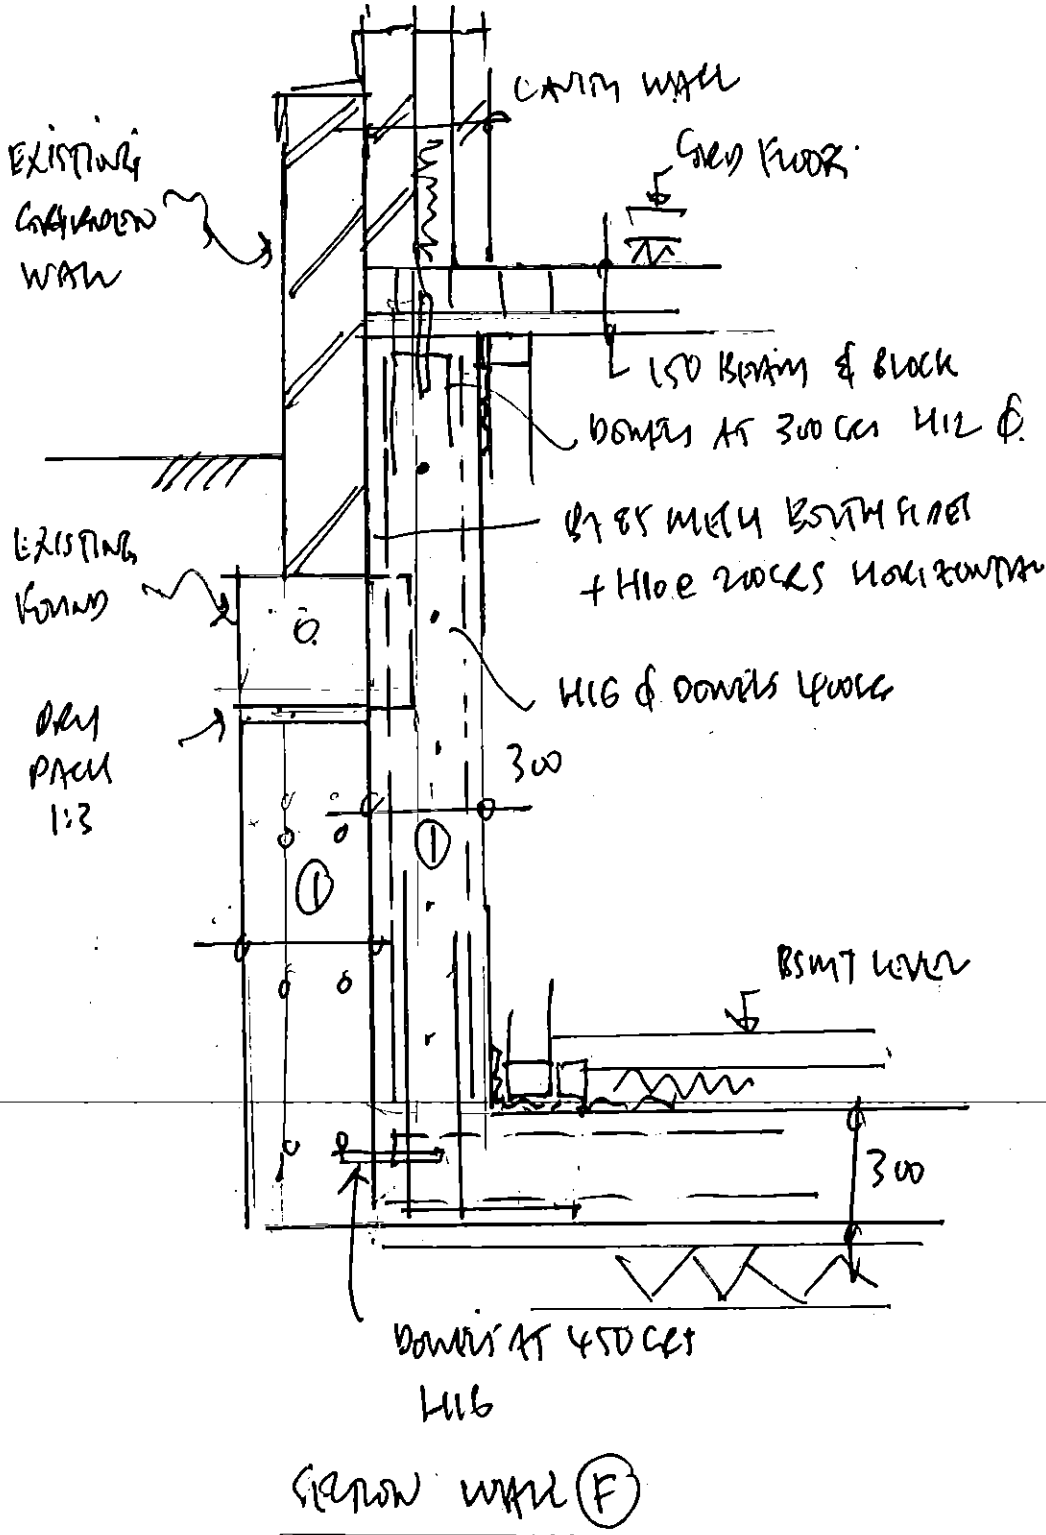 CAVITY WALL
GRD FLOOR
EXISTING
GARDEN
WALL
150 BEAM & BLOCK
DOWELS AT 300 CRS H12 Ø
B785 MESH BOTH FACES
+ H10 @ 200 CRS HORIZONTAL
EXISTING
FOUND
H16 Ø DOWELS 400 CRS
DRY
PACK
1:3
300
1
1
BSMT LEVEL
300
DOWELS AT 450 CRS
H16
SECTION WALL F